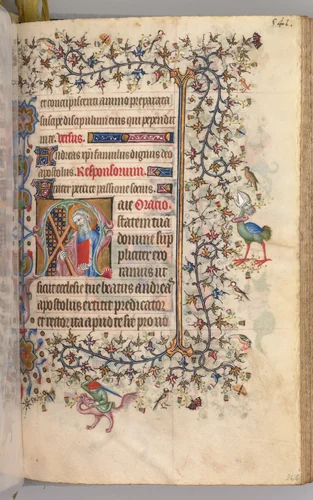 541.
et concupiscenti animo preparata
suscipe discipulum eius qui pependit
in te. Versus.
Andreas xpi famulus dignus deo
apostolus. Responsorium.
Inter petra et passione socius.
Maie Oratio
statem tuā
domine sup
pliciter exo
ramus ut
sicut ecclesie tue beatus andreas
apostolus extitit predicator
et rector ita apud te sit pro no